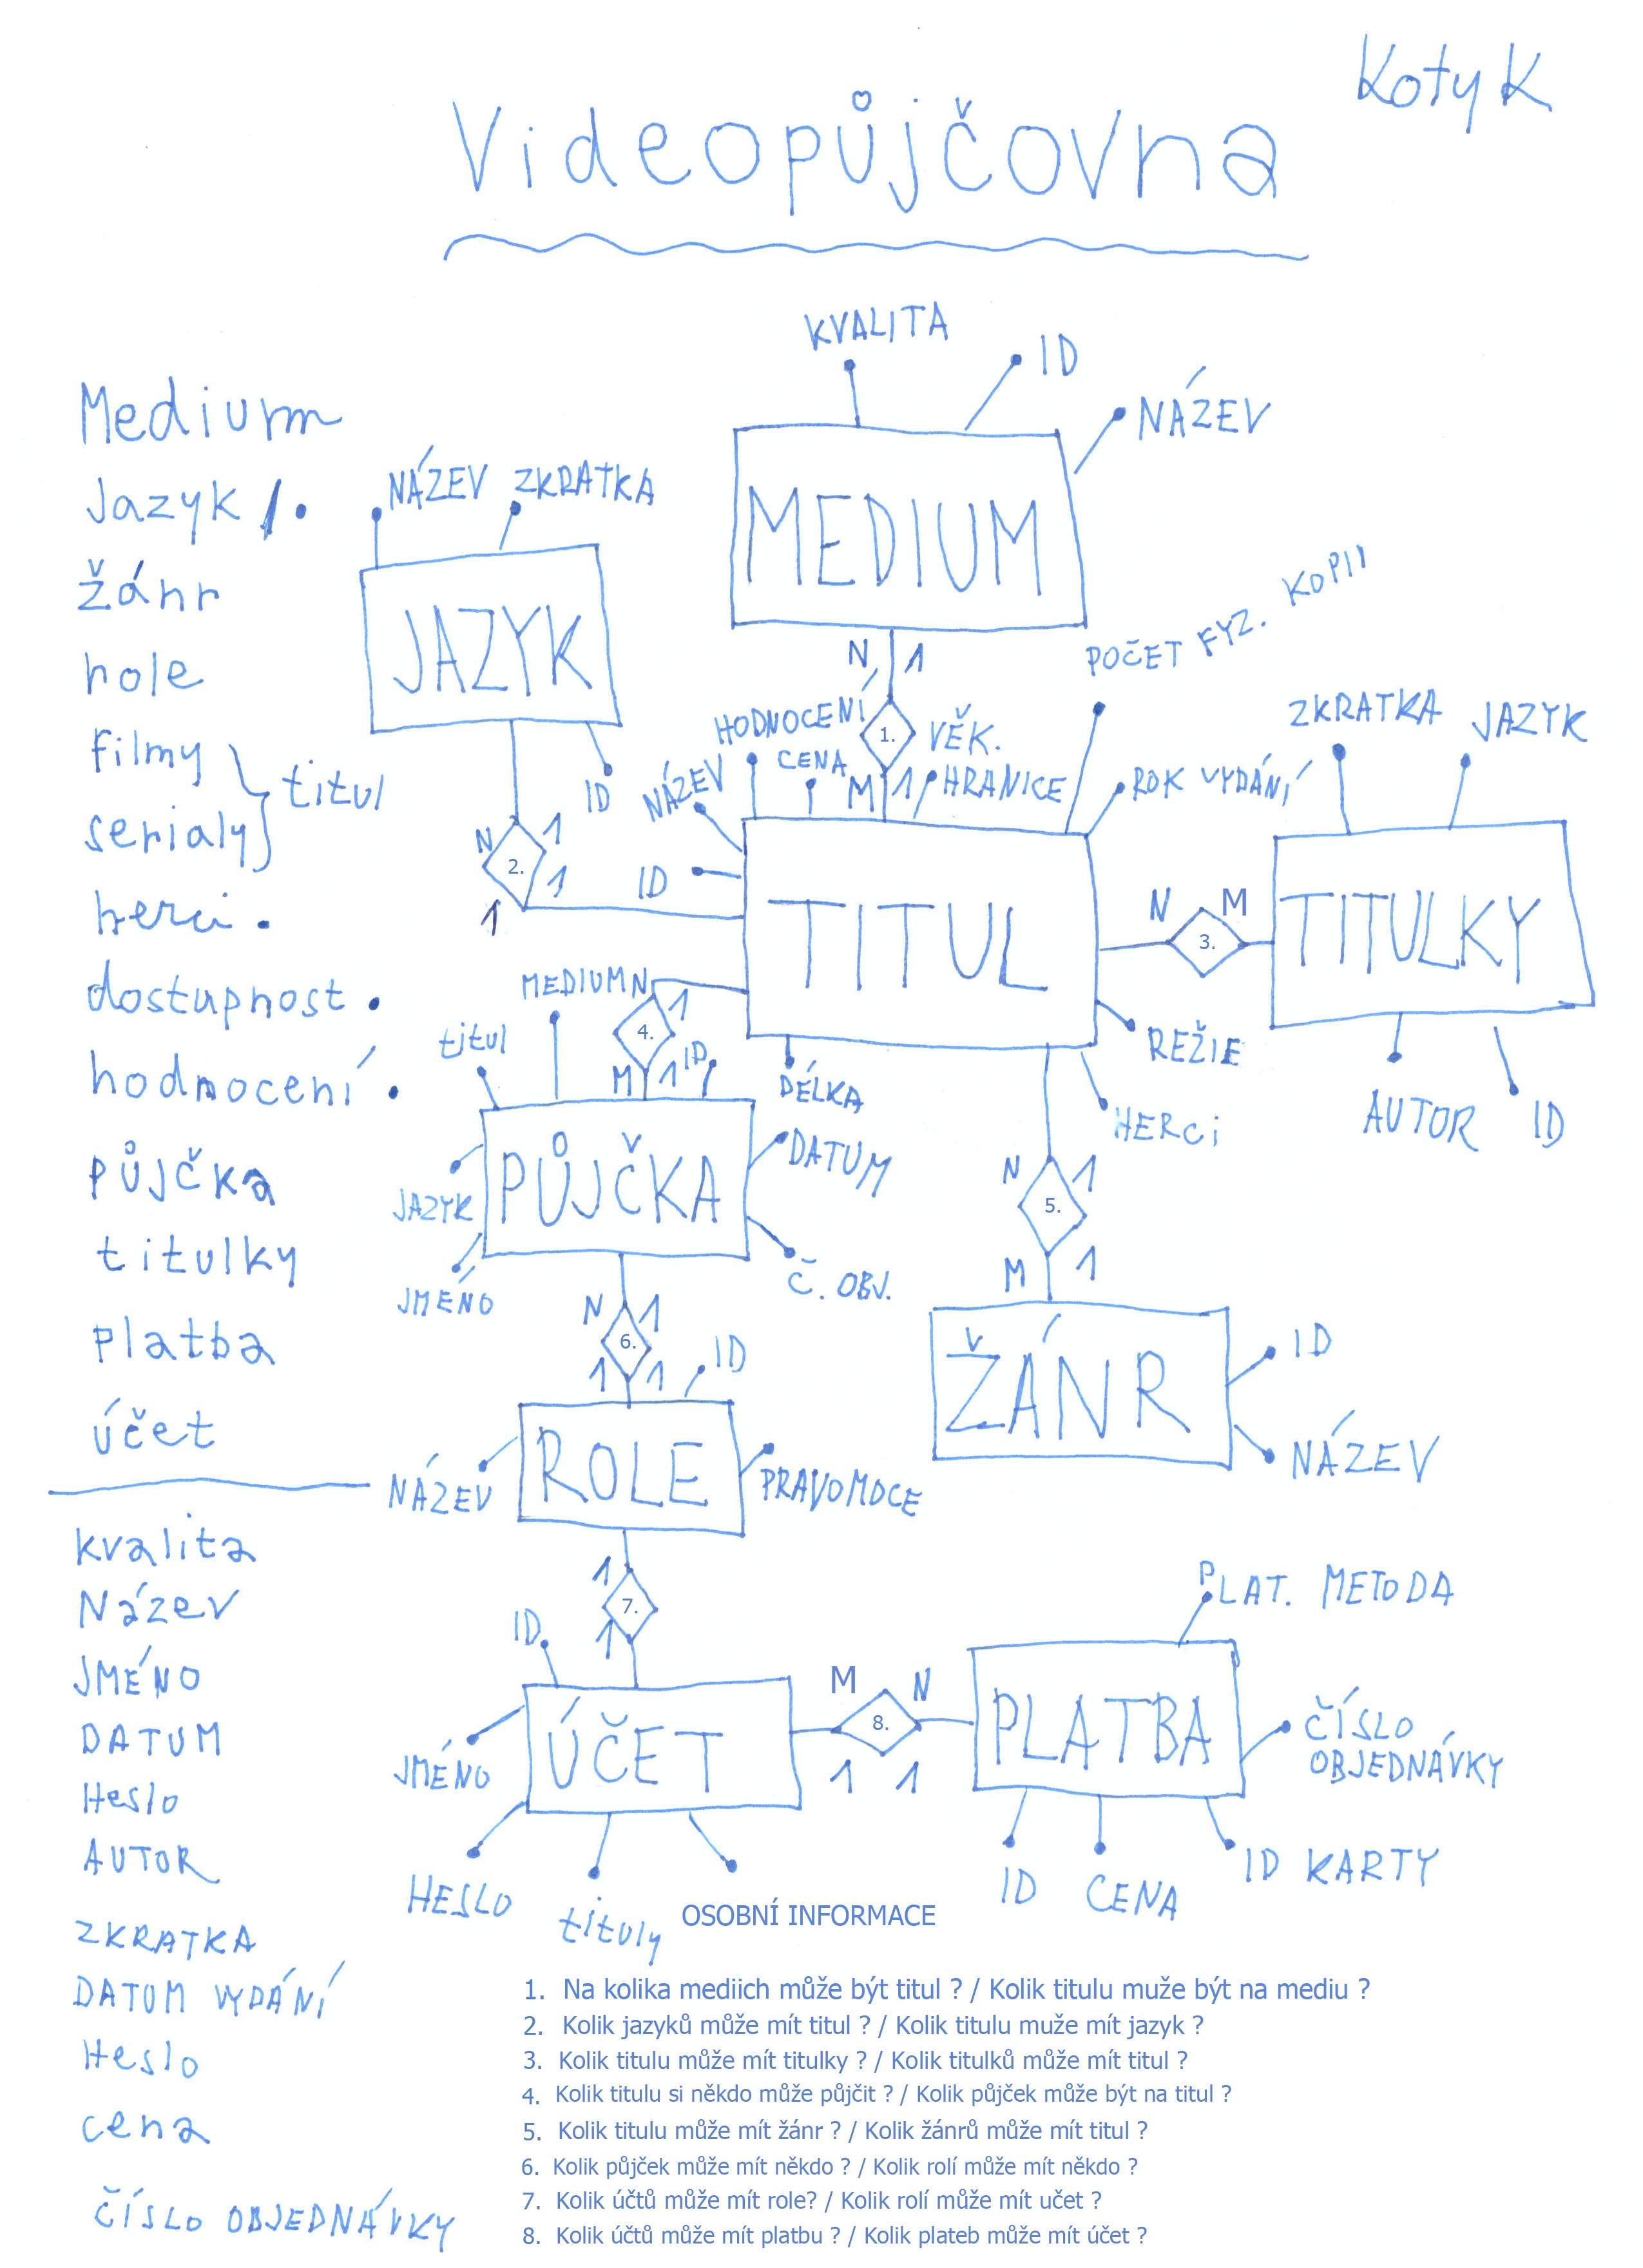 Kotyk
Videopůjčovna
Medium
Jazyk 1.
žánr
role
filmy
serialy
titul
herci.
dostupnost.
hodnocení.
půjčka
titulky
platba
účet
kvalita
Název
JMÉNO
DATUM
Heslo
AUTOR
ZKRATKA
DATUM VYDÁNÍ
Heslo
cena
ČÍSLO OBJEDNÁVKY
KVALITA
ID
NÁZEV
MEDIUM
N 1
1.
M 1
NÁZEV ZKRATKA
JAZYK
ID
N 1
2.
1 1
HODNOCENÍ
CENA
VĚK.
HRANICE
POČET FYZ. KOPII
ROK VYDÁNÍ
NÁZEV
ID
TITUL
REŽIE
HERCi
DÉLKA
N M
3.
ZKRATKA
JAZYK
TITULKY
AUTOR
ID
N 1
4.
M 1
titul
MEDIUM
ID
PŮJČKA
DATUM
Č. OBJ.
JAZYK
JMÉNO
N 1
5.
M 1
ŽÁNR
ID
NÁZEV
N 1
6.
1 1
ID
ROLE
NÁZEV
PRAVOMOCE
1
7.
1
ID
ÚČET
JMÉNO
HESLO
tituly
OSOBNÍ INFORMACE
M N
8.
1 1
PLAT. METODA
PLATBA
ČÍSLO
OBJEDNÁVKY
ID
CENA
ID KARTY
1. Na kolika mediich může být titul ? / Kolik titulu muže být na mediu ?
2. Kolik jazyků může mít titul ? / Kolik titulu muže mít jazyk ?
3. Kolik titulu může mít titulky ? / Kolik titulků může mít titul ?
4. Kolik titulu si někdo může půjčit ? / Kolik půjček může být na titul ?
5. Kolik titulu může mít žánr ? / Kolik žánrů může mít titul ?
6. Kolik půjček může mít někdo ? / Kolik rolí může mít někdo ?
7. Kolik účtů může mít role? / Kolik rolí může mít učet ?
8. Kolik účtů může mít platbu ? / Kolik plateb může mít účet ?